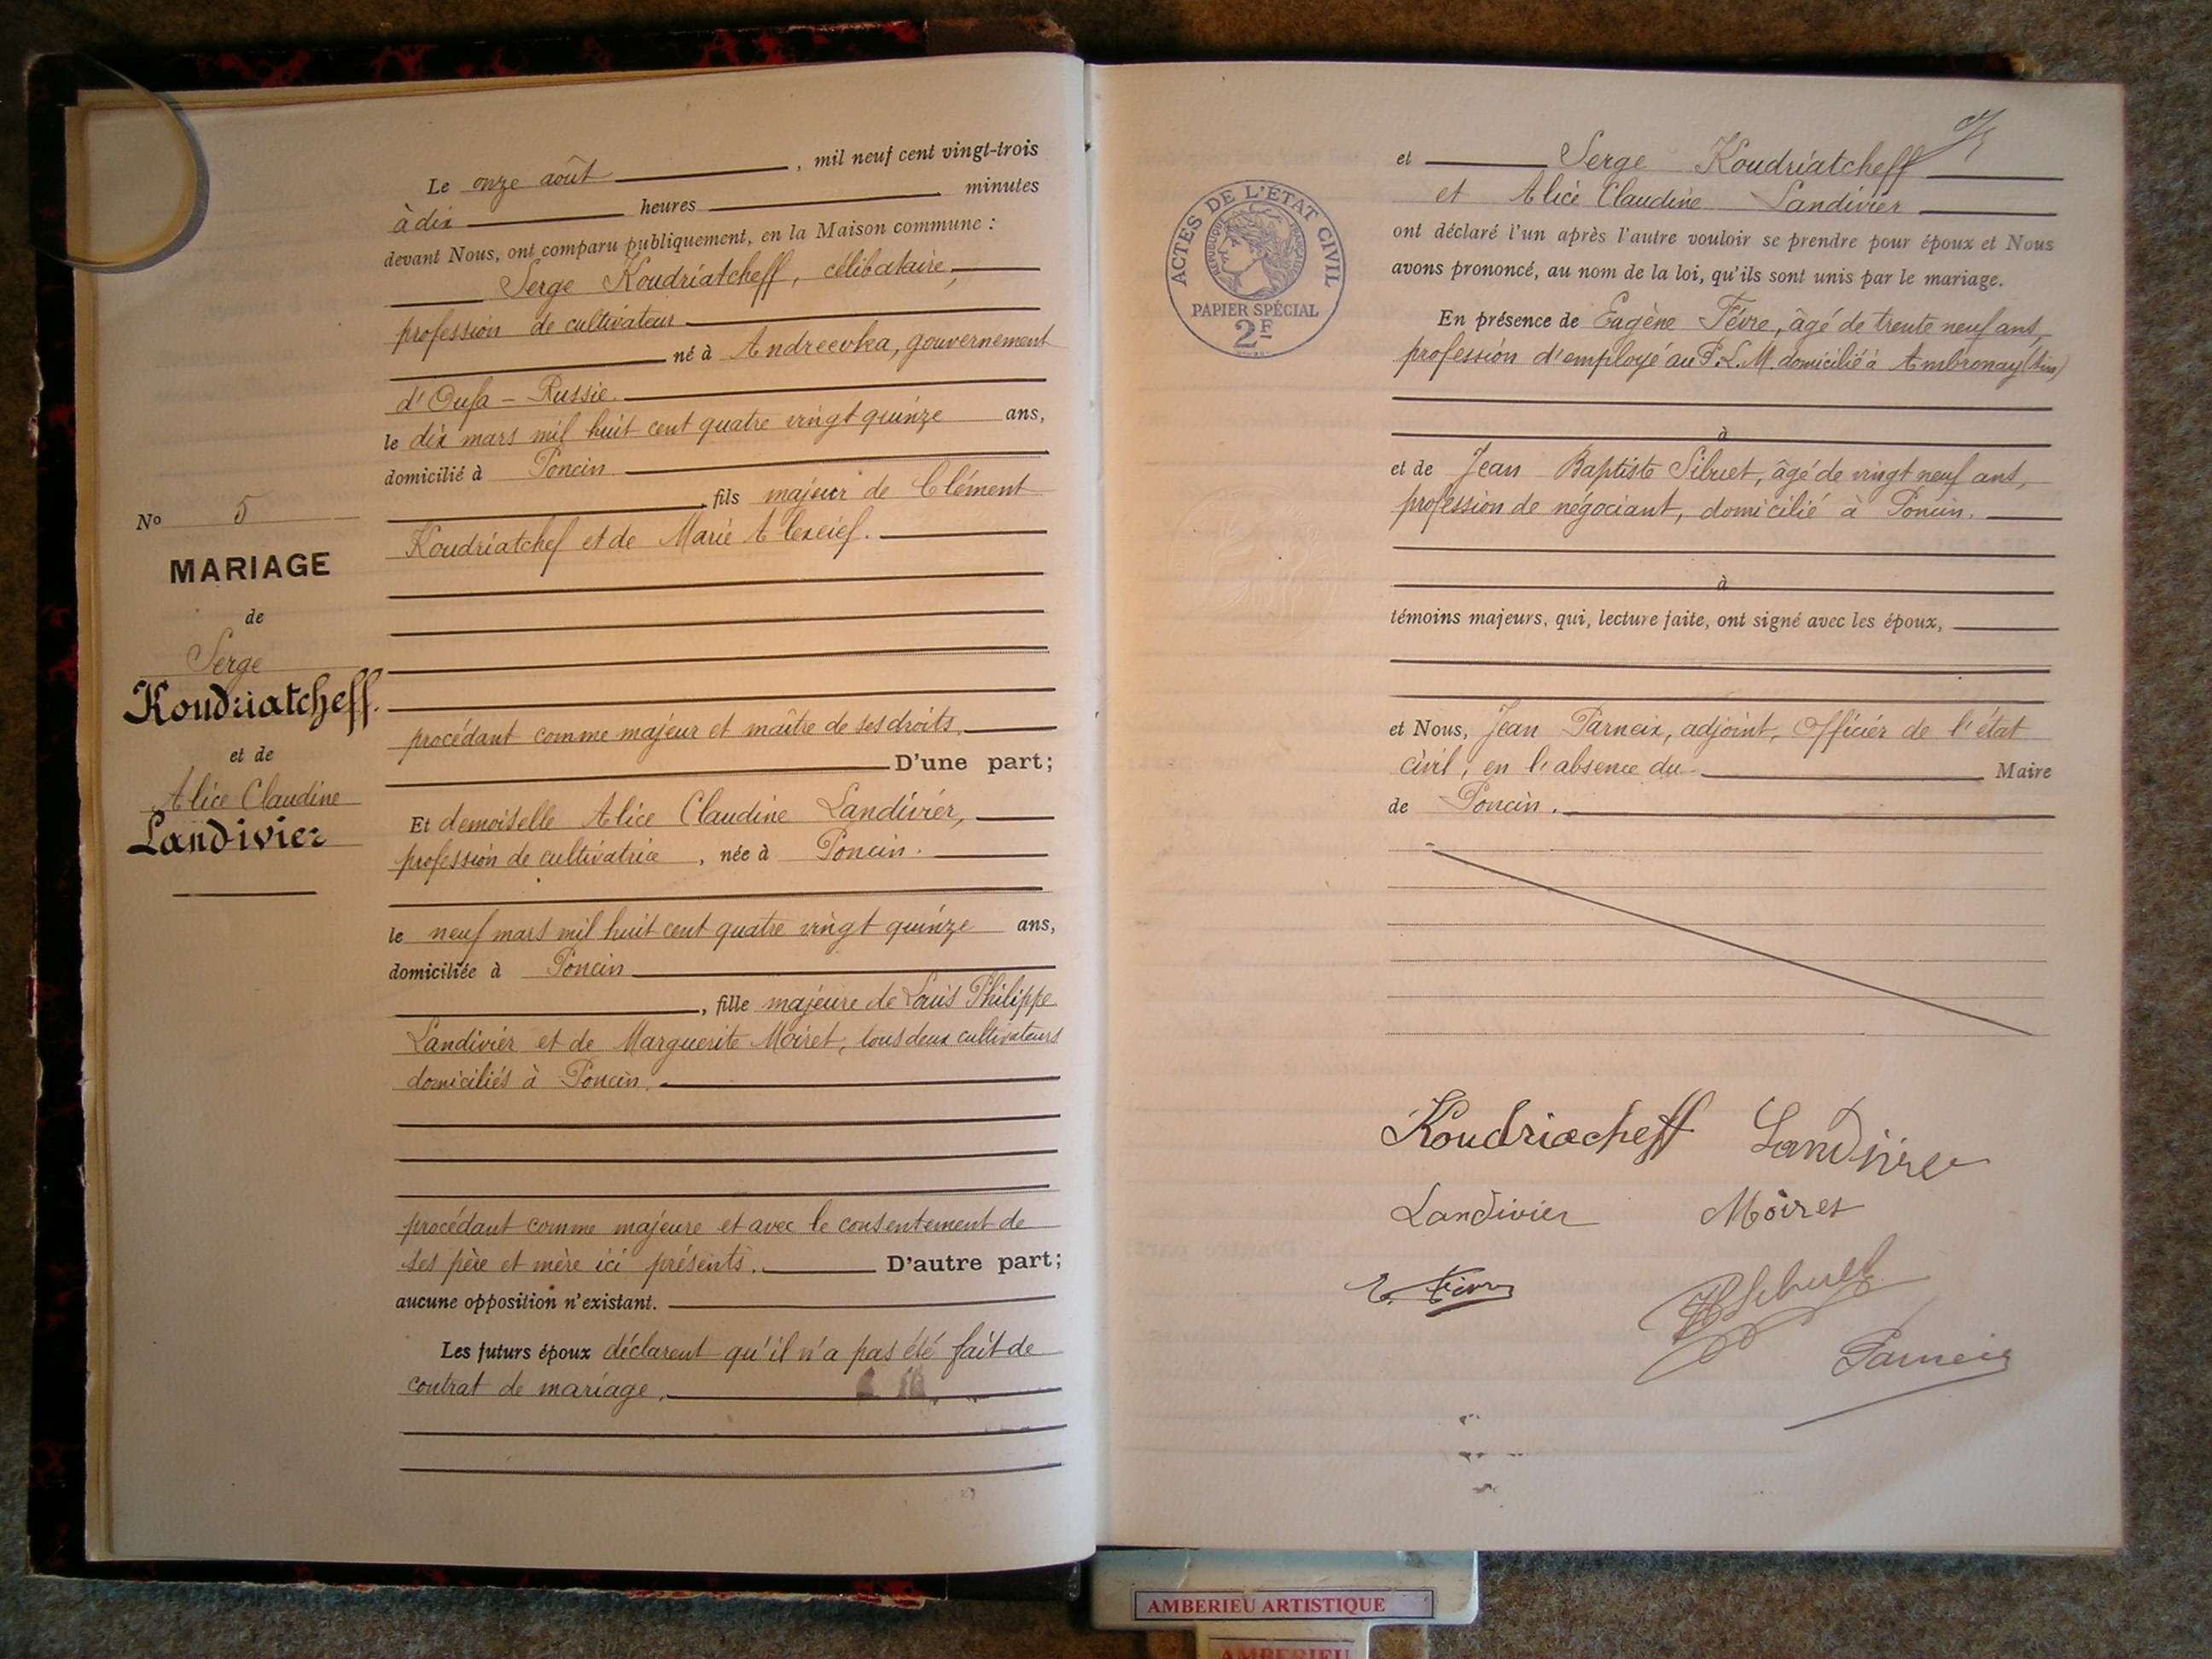 No 5
MARIAGE
de
Serge
Koudriatcheff.
et de
Alice Claudine
Landivier
Le onze août, mil neuf cent vingt-trois
à dix heures minutes
devant Nous, ont comparu publiquement, en la Maison commune :
Serge Koudriatcheff, célibataire,
profession de cultivateur
né à Andreevka, gouvernement
d'Oufa - Russie.
le dix mars mil huit cent quatre vingt quinze ans,
domicilié à Poncin
, fils majeur de Clément
Koudriatchef et de Marie Alexeief.
procédant comme majeur et maître de ses droits.
D'une part;
Et demoiselle Alice Claudine Landivier,
profession de cultivatrice, née à Poncin.
le neuf mars mil huit cent quatre vingt quinze ans,
domiciliée à Poncin
, fille majeure de Louis Philippe
Landivier et de Marguerite Moiret, tous deux cultivateurs
domiciliés à Poncin.
procédant comme majeure et avec le consentement de
ses père et mère ici présents. D'autre part;
aucune opposition n'existant.
Les futurs époux déclarent qu'il n'a pas été fait de
contrat de mariage.
ACTES DE L'ÉTAT CIVIL
RÉPUBLIQUE FRANÇAISE
PAPIER SPÉCIAL
2F
et Serge Koudriatcheff
et Alice Claudine Landivier
ont déclaré l'un après l'autre vouloir se prendre pour époux et Nous
avons prononcé, au nom de la loi, qu'ils sont unis par le mariage.
En présence de Eugène Févre, âgé de trente neuf ans,
profession d'employé au P.L.M. domicilié à Ambronay (Ain)
à
et de Jean Baptiste Sibuet, âgé de vingt neuf ans,
profession de négociant, domicilié à Poncin.
à
témoins majeurs, qui, lecture faite, ont signé avec les époux,
et Nous, Jean Parneix, adjoint, Officier de l'état
civil, en l'absence du Maire
de Poncin.
Koudriacheff Landivier
Landivier Moiret
E. Fèvre
Sibuet
Parneix
AMBERIEU ARTISTIQUE
AMBERIEU